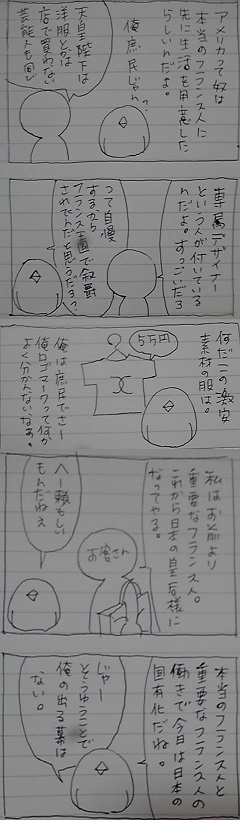 アメリカって奴は
本当のフランス人に
先に生活を用意した
らしいんだよ。
俺庶民じゃん?
天皇陛下は
洋服とかは
店で買わない
芸能人も同じ
専属デザイナー
という人が付いている
んだよ。すっごいだろ
って自慢
するから
フランス王国で叙爵
されてんだと思うだろ?
何だこの激安
素材の服は。
5万円
俺は庶民でさー
俺ロゴマークって何か
よく分かんないなあ。
私はお前より
重要なフランス人。
これから日本の皇后様に
なってやる。
お客さん
へー頼もしい
もんだねえ
本当のフランス人と
重要なフランス人の
働きで今日は日本の
国有化だね。
じゃー
とゆうことで
俺の出る幕は
ない。